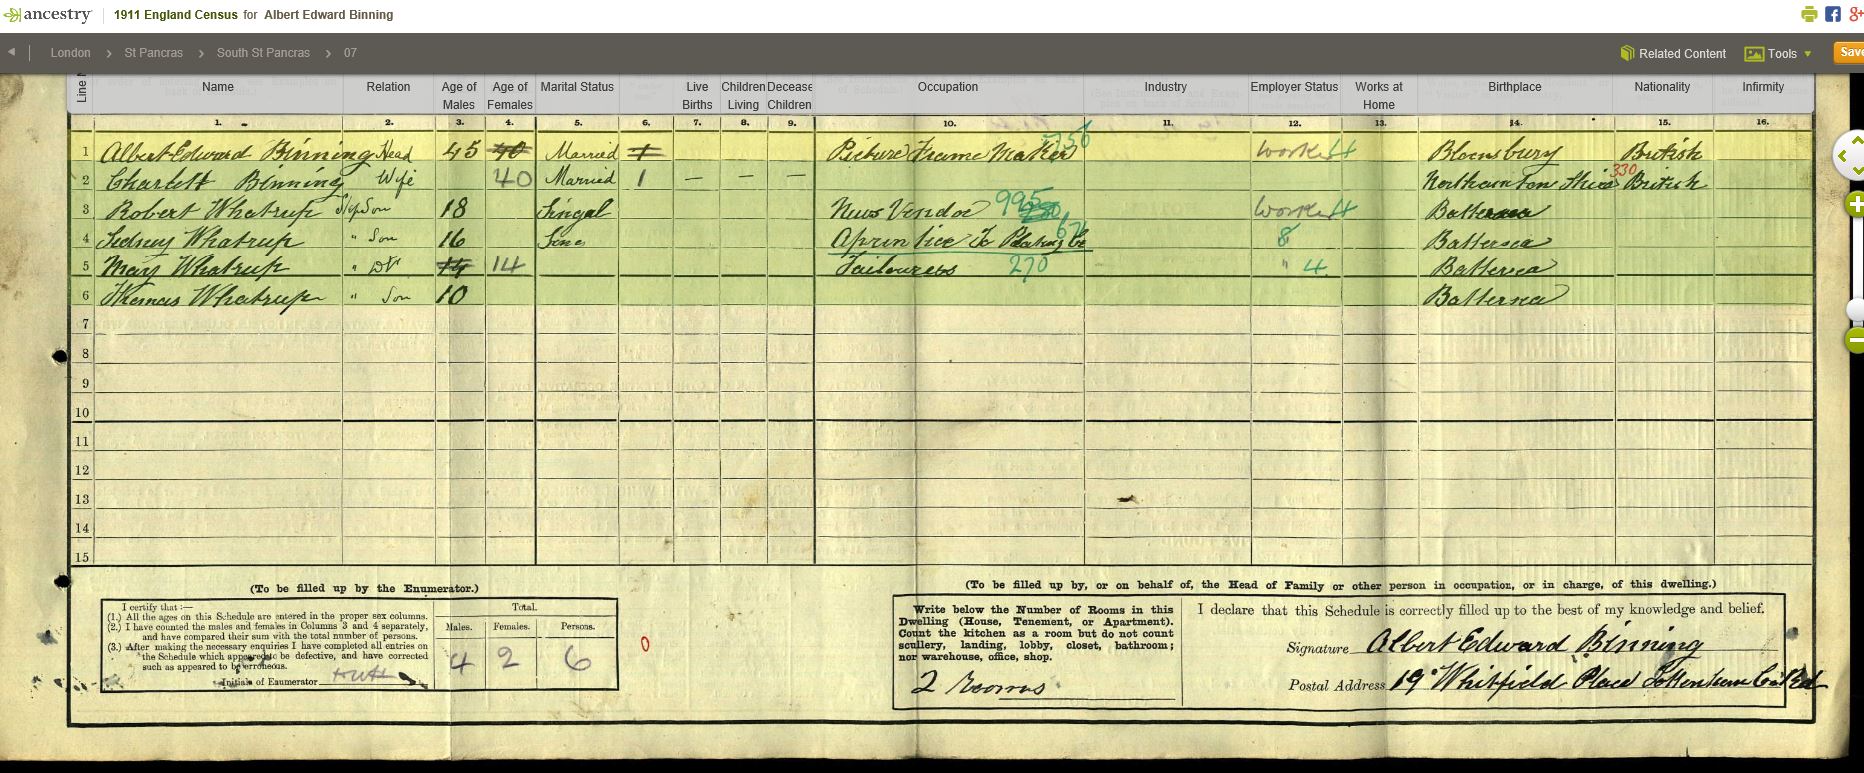 ancestry 1911 England Census for Albert Edward Binning
London > St Pancras > South St Pancras > 07 Related Content Tools Save
Line Name Relation Age of Males Age of Females Marital Status Live Births Children Living Decease Children Occupation Industry Employer Status Works at Home Birthplace Nationality Infirmity
1. 2. 3. 4. 5. 6. 7. 8. 9. 10. 11. 12. 13. 14. 15. 16.
1 Albert Edward Binning Head 45 40 Married 1 Picture Frame Maker 756 Worker 4 Bloomsbury British
2 Charlett Binning Wife 40 Married 1 — — — Northamton Shire 330 British
3 Robert Whatrup Step Son 18 Singal News Vendor 995 Worker 4 Battersea
4 Sidney Whatrup " Son 16 Aprintice To 8 Battersea
5 Mary Whatrup " Dtr 14 14 Tailouress 270 " 4 Battersea
6 Thomas Whatrup " Son 10 Battersea
7
8
9
10
11
12
13
14
15
(To be filled up by the Enumerator.)
I certify that :—
(1.) All the ages on this Schedule are entered in the proper sex columns.
(2.) I have counted the males and females in Columns 3 and 4 separately,
and have compared their sum with the total number of persons.
(3.) After making the necessary enquiries I have completed all entries on
the Schedule which appeared to be defective, and have corrected
such as appeared to be erroneous.
Initials of Enumerator
Total.
Males. Females. Persons.
4 2 6
0
(To be filled up by, or on behalf of, the Head of Family or other person in occupation, or in charge, of this dwelling.)
Write below the Number of Rooms in this
Dwelling (House, Tenement, or Apartment).
Count the kitchen as a room but do not count
scullery, landing, lobby, closet, bathroom;
nor warehouse, office, shop.
2 Rooms
I declare that this Schedule is correctly filled up to the best of my knowledge and belief.
Signature Albert Edward Binning
Postal Address 19 Whitfield Place Tottenham Court Rd